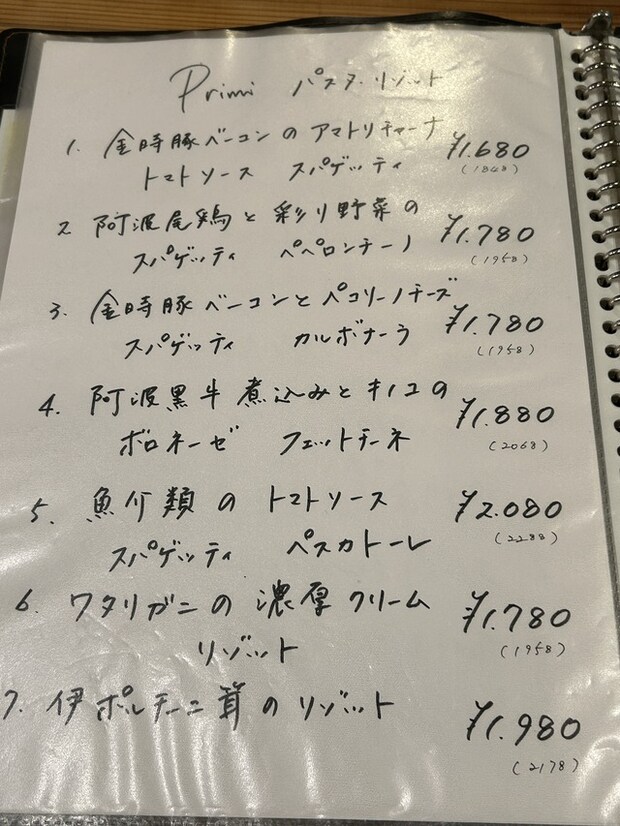 Primi パスタ・リゾット
1. 金時豚ベーコンのアマトリチャーナ ¥1.680
トマトソース スパゲッティ (1848)
2 阿波尾鶏と彩り野菜の ¥1.780
スパゲッティ ペペロンチーノ (1958)
3. 金時豚ベーコンとペコリーノチーズ ¥1.780
スパゲッティ カルボナーラ (1958)
4. 阿波黒牛煮込みとキノコの ¥1.880
ボロネーゼ フェットチーネ (2068)
5. 魚介類のトマトソース ¥2.080
スパゲッティ ペスカトーレ (2288)
6. ワタリガニの濃厚クリーム ¥1.780
リゾット (1958)
7. 伊ポルチーニ茸のリゾット ¥1.980
(2178)